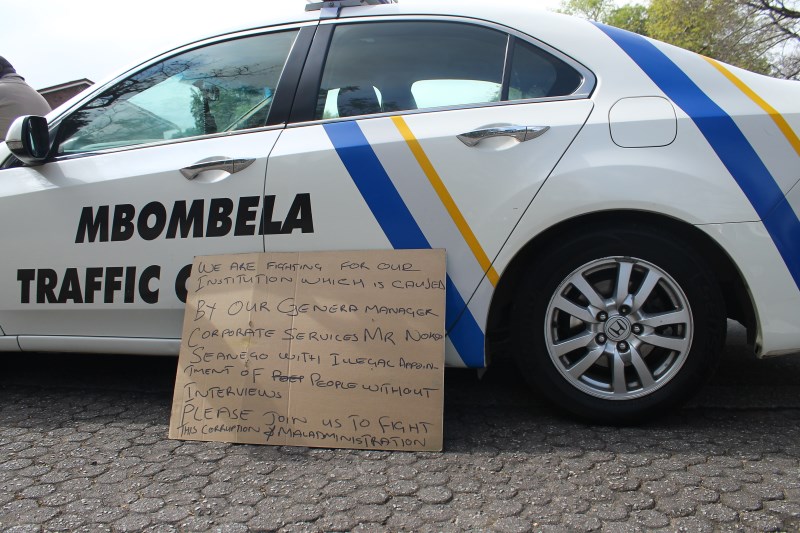 MBOMBELA
TRAFFIC C
WE ARE FIGHTING FOR OUR
INSTITUTION WHICH IS CAUSED
BY OUR GENERA MANAGER
CORPORATE SERVICES MR
SEANEGO WITH ILLEGAL APPOIN
TMENT OF PEOPLE WITHOUT
INTERVIEWS
PLEASE JOIN US TO FIGHT
THIS CORRUPTION & MALADMINISTRATION